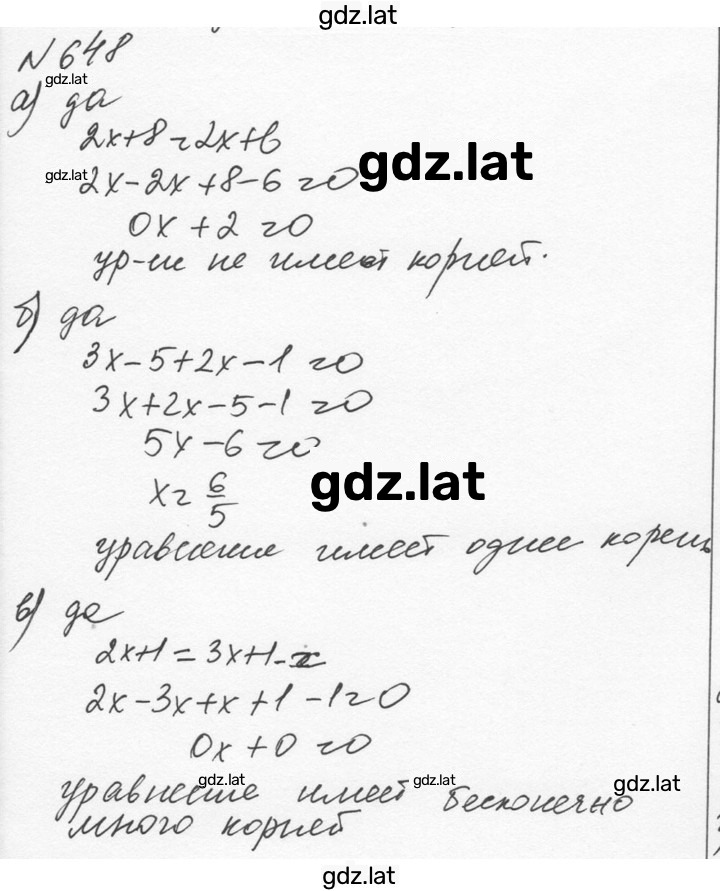 gdz.lat
N 648
gdz.lat
а) да
2x+8=2x+6
gdz.lat
gdz.lat
2x-2x+8-6=0
0x+2=0
ур-ие не имеет корней.
б) да
3x-5+2x-1=0
3x+2x-5-1=0
5x-6=0
gdz.lat
x=6/5
уравнение имеет один корень
в) да
2x+1=3x+1-x
2x-3x+x+1-1=0
0x+0=0
gdz.lat
gdz.lat
gdz.lat
уравнение имеет бесконечно
много корней
gdz.lat